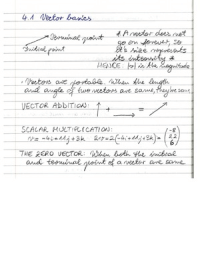 4.1 Vector basics
Terminal point
Initial point
* A vector does not
go on forever, so
it's size represents
its intensity *
HENCE |v| is the magnitude
· Vectors are portable. When the length
and angle of two vectors are same, they're same
VECTOR ADDITION: ↑ + → = ↗
SCALAR MULTIPLICATION:
v = -4i + 11j + 3k 2v = 2(-4i + 11j + 3k) = (-8 22 6)
THE ZERO VECTOR: When both the initial
and terminal point of a vector are same